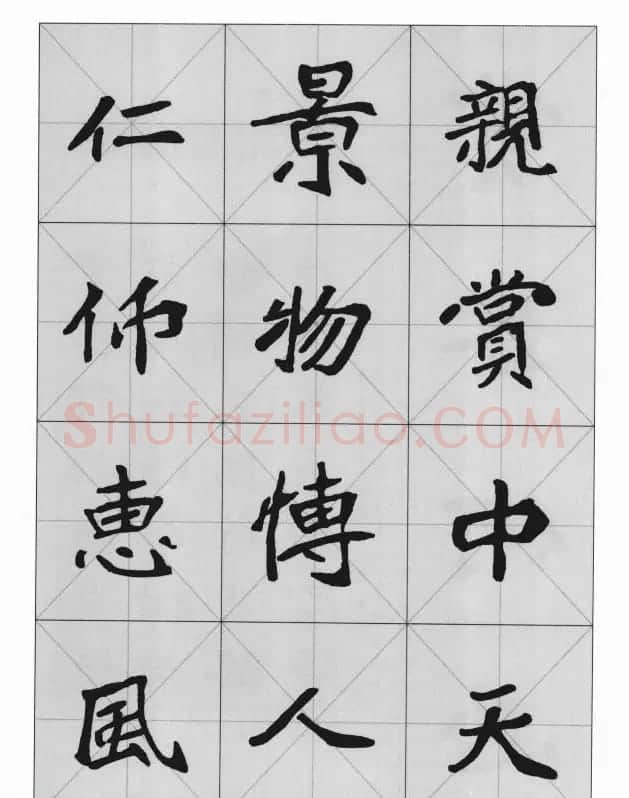 親賞中天
景物愽人
仁仰惠風
Shufaziliao.COM